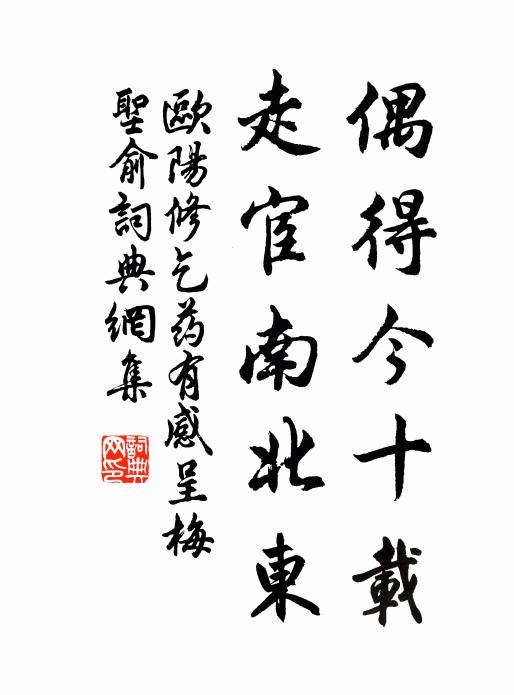 偶得今十載
走宦南北東
歐陽修乞药有感呈梅
聖俞詞典網集
詞典网印